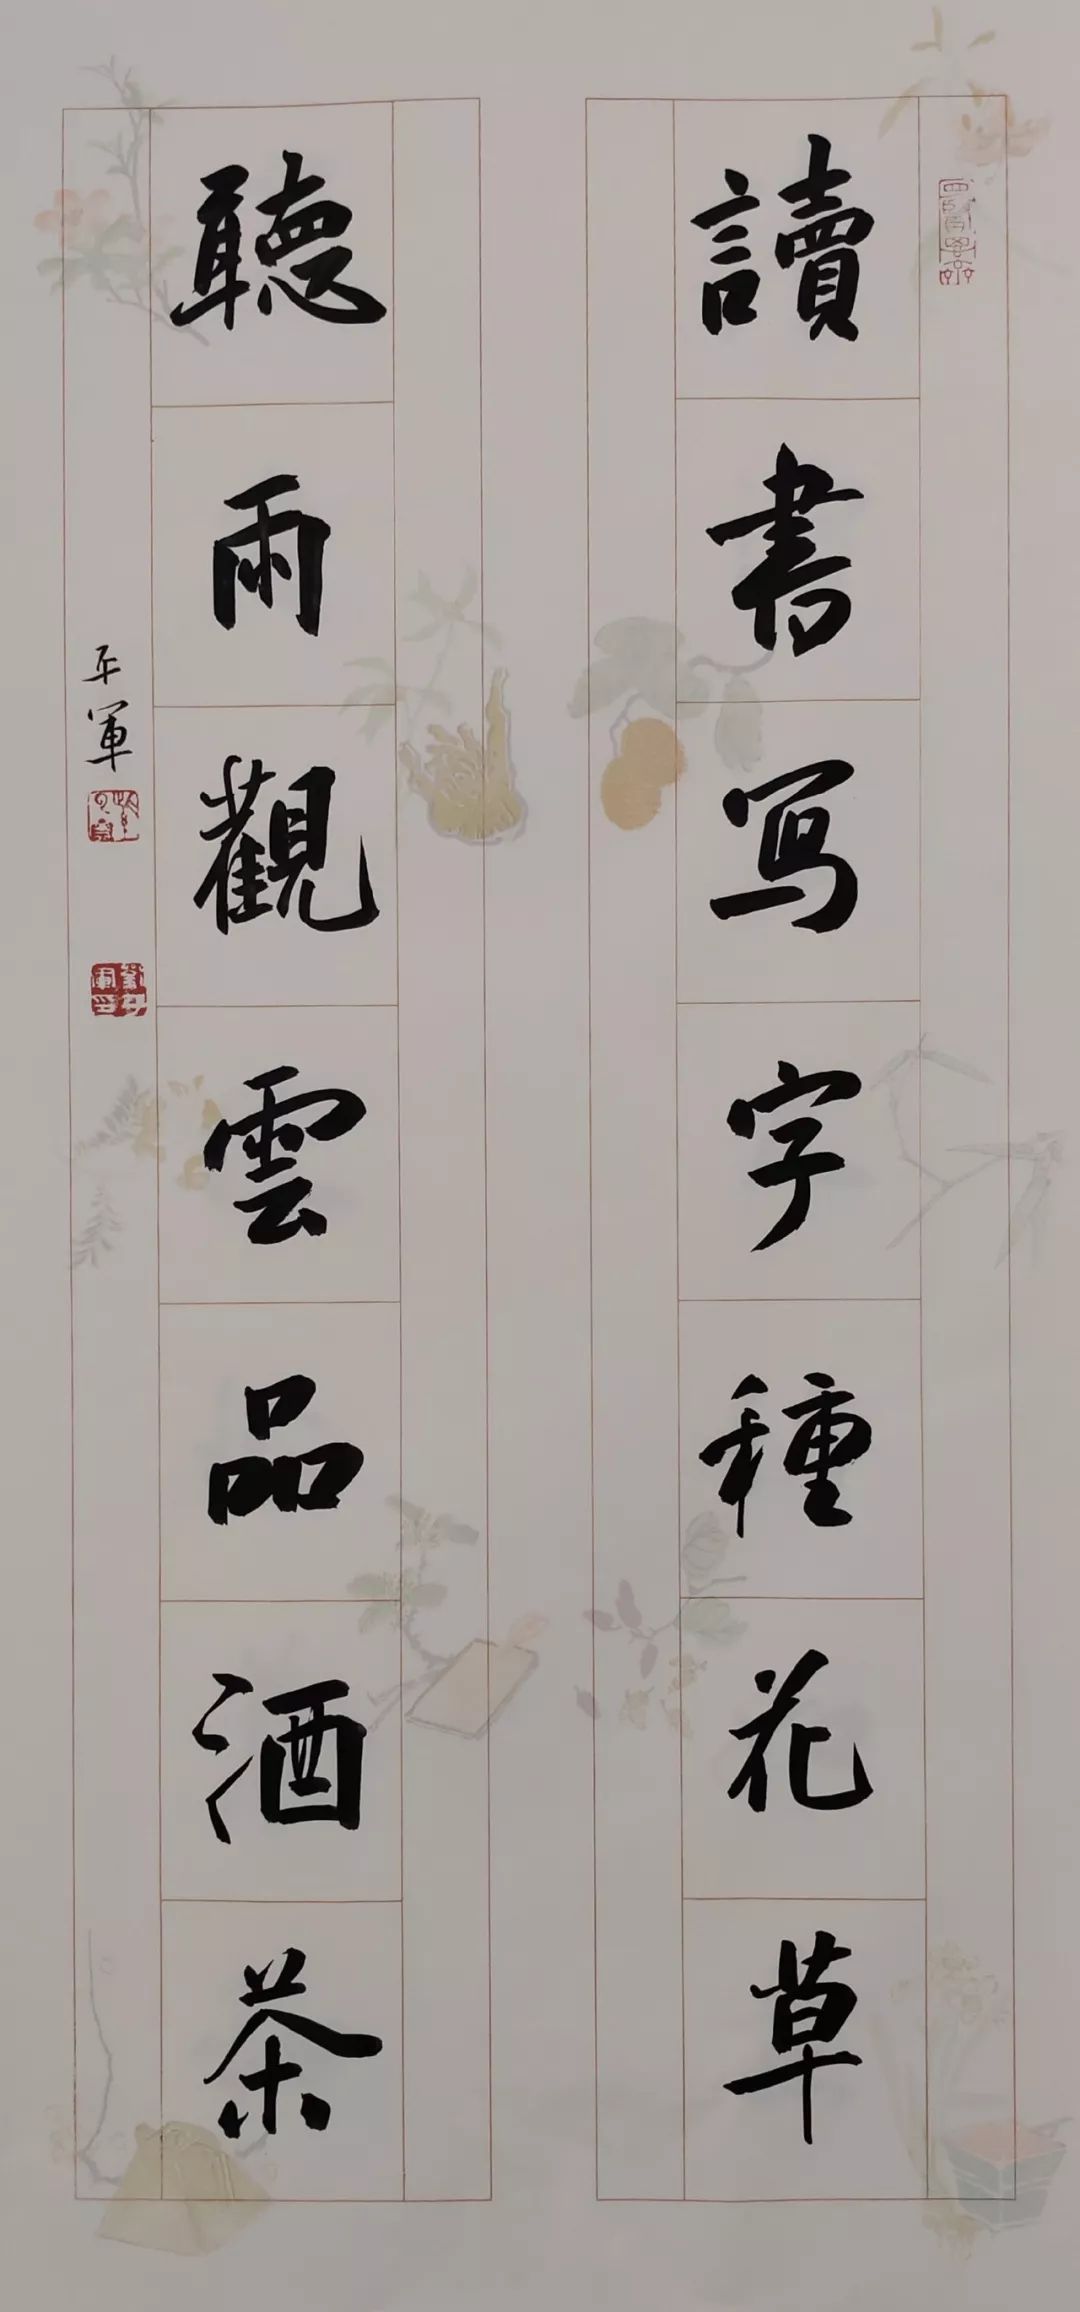 讀書写字種花草
聽雨觀雲品酒茶
平軍